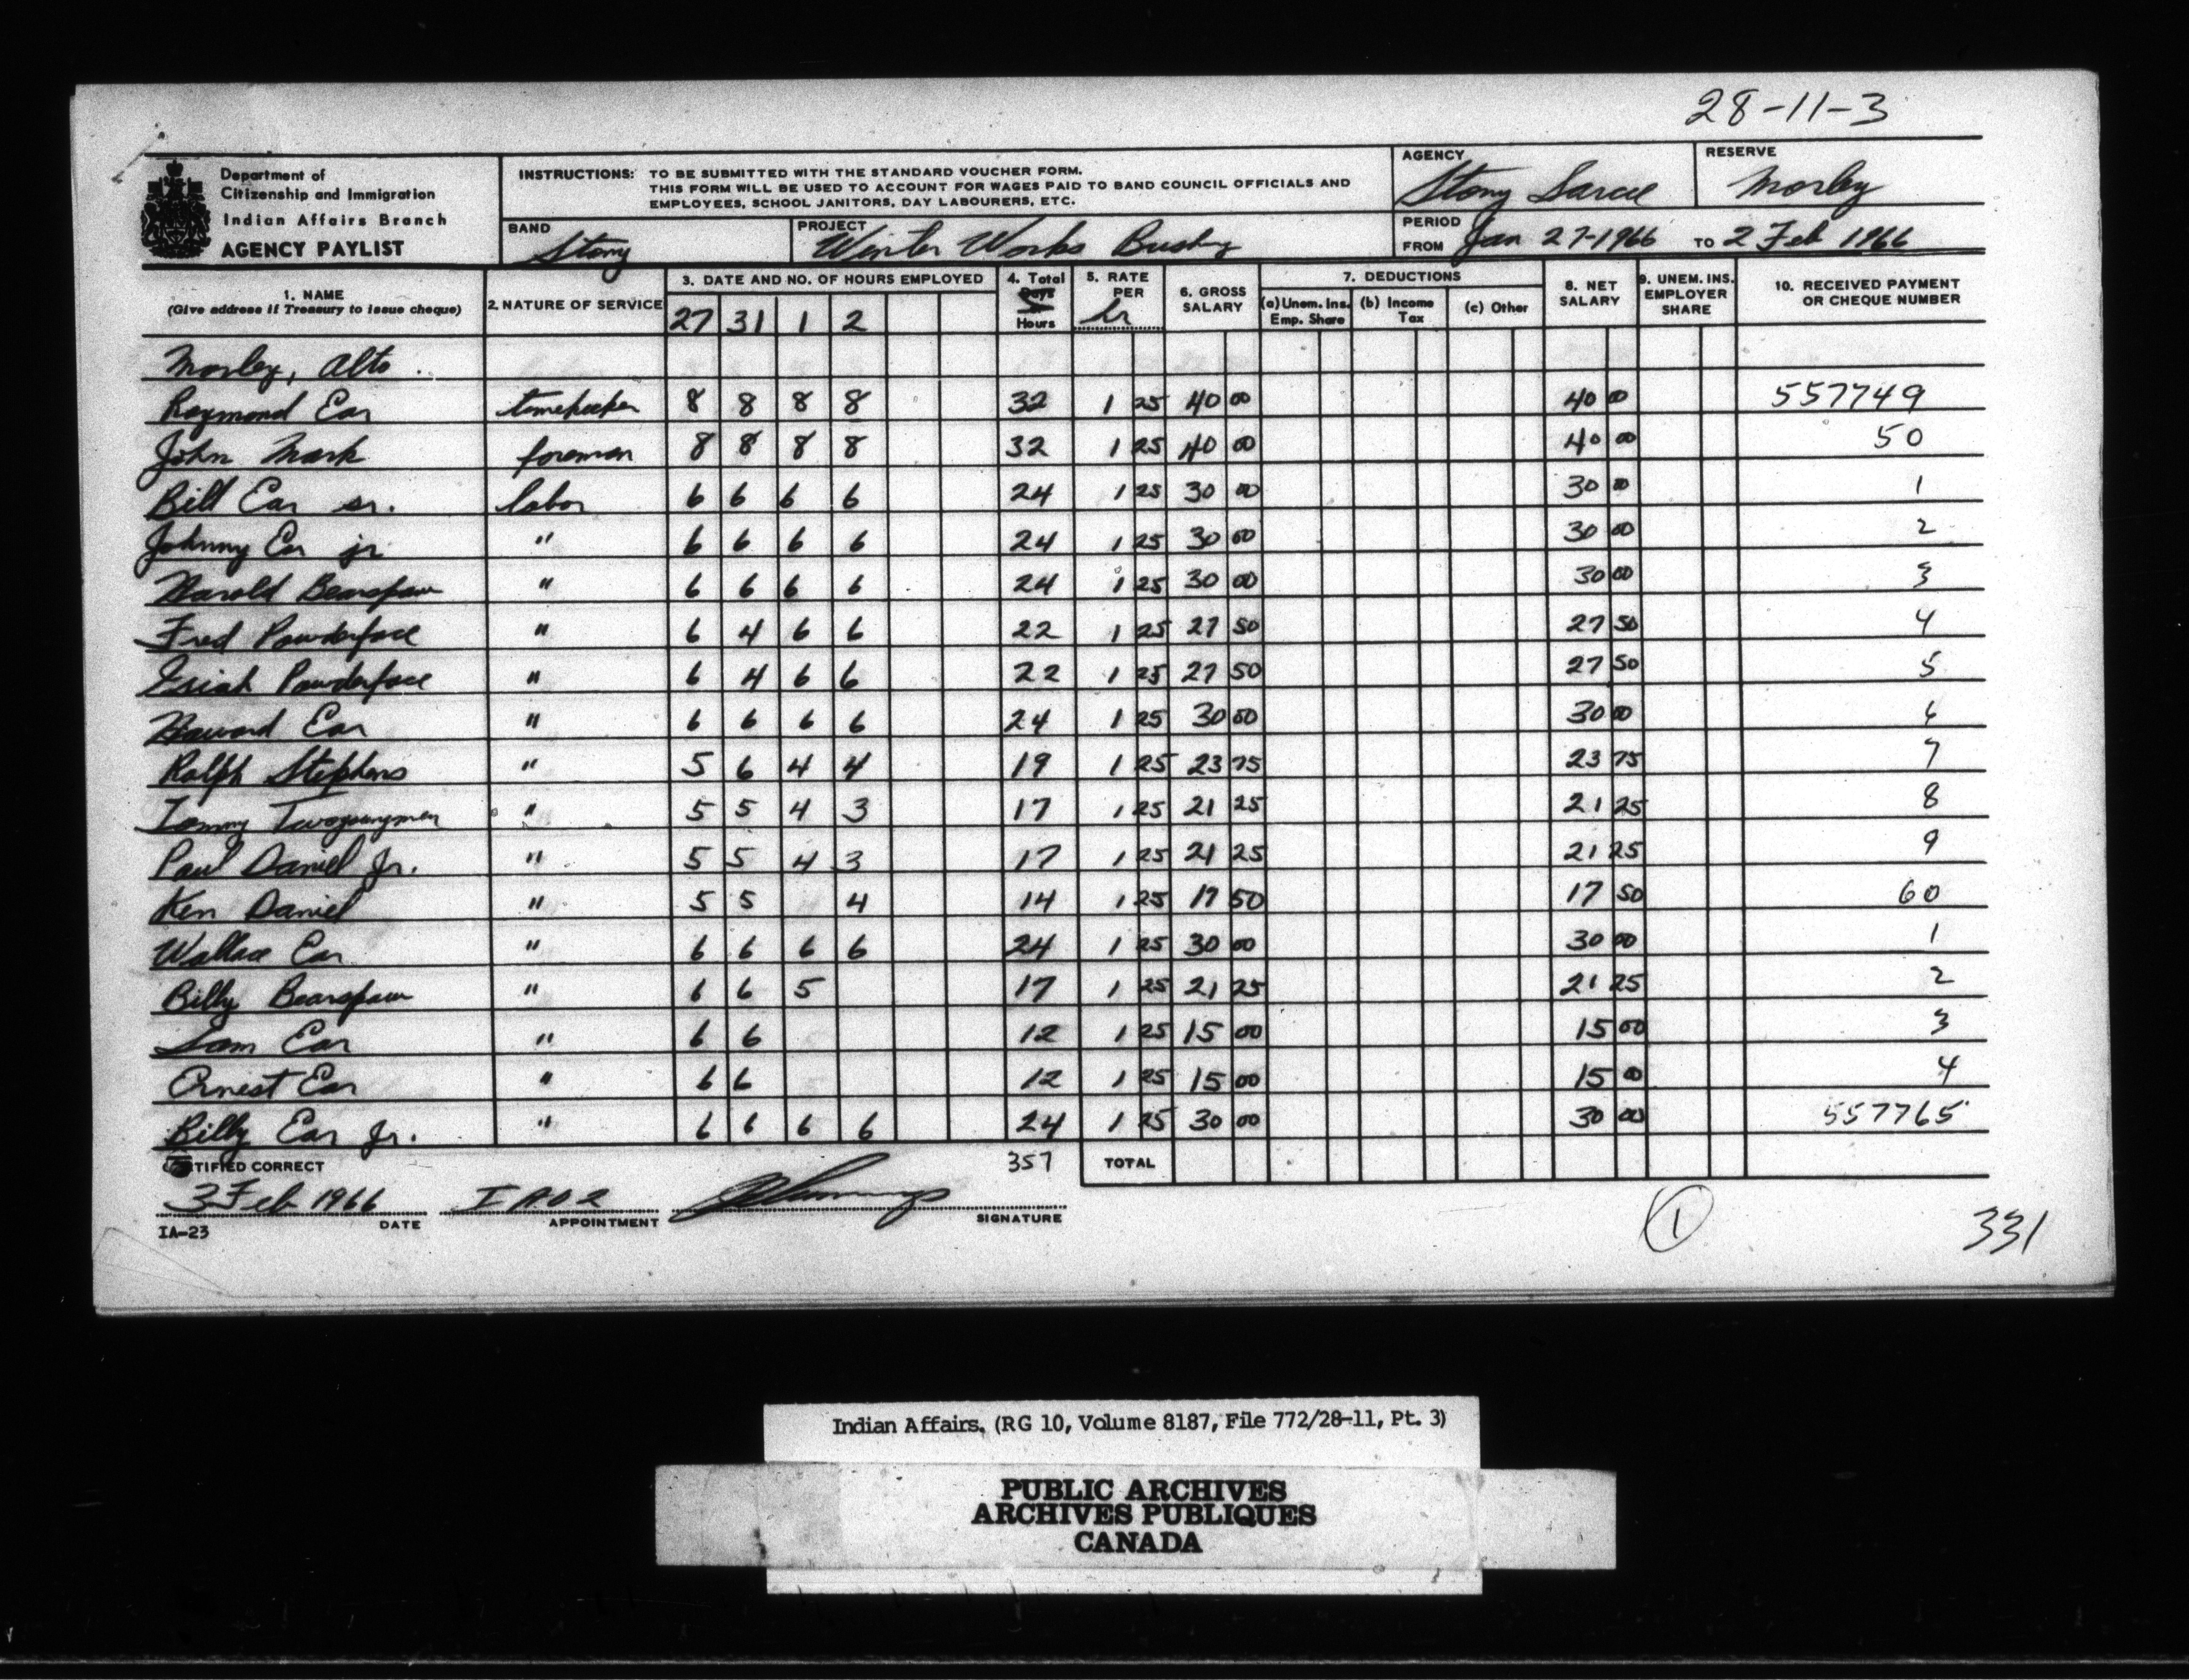 28-11-3
Department of
Citizenship and Immigration
Indian Affairs Branch
AGENCY PAYLIST
INSTRUCTIONS: TO BE SUBMITTED WITH THE STANDARD VOUCHER FORM.
THIS FORM WILL BE USED TO ACCOUNT FOR WAGES PAID TO BAND COUNCIL OFFICIALS AND
EMPLOYEES, SCHOOL JANITORS, DAY LABOURERS, ETC.
AGENCY Stony Sarcee
RESERVE Morley
BAND Stony
PROJECT Winter Works Bushing
PERIOD FROM Jan 27-1966 TO 2 Feb 1966
1. NAME (Give address if Treasury to issue cheque) 2. NATURE OF SERVICE 3. DATE AND NO. OF HOURS EMPLOYED 4. Total Days Hours 5. RATE PER hr 6. GROSS SALARY 7. DEDUCTIONS (a) Unem. Ins. Emp. Share (b) Income Tax (c) Other 8. NET SALARY 9. UNEM. INS. EMPLOYER SHARE 10. RECEIVED PAYMENT OR CHEQUE NUMBER
27 31 1 2
Morley, Alta.
Raymond Ear timekeeper 8 8 8 8 32 1 25 40 00 40 00 557749
John Mark foreman 8 8 8 8 32 1 25 40 00 40 00 50
Bill Ear sr. labor 6 6 6 6 24 1 25 30 00 30 00 1
Johnny Ear jr " 6 6 6 6 24 1 25 30 00 30 00 2
Harold Bearspaw " 6 6 6 6 24 1 25 30 00 30 00 3
Fred Powderface " 6 4 6 6 22 1 25 27 50 27 50 4
Isiah Powderface " 6 4 6 6 22 1 25 27 50 27 50 5
Howard Ear " 6 6 6 6 24 1 25 30 00 30 00 6
Ralph Stephens " 5 6 4 4 19 1 25 23 75 23 75 7
Tommy Twoyoungmen " 5 5 4 3 17 1 25 21 25 21 25 8
Paul Daniel Jr. " 5 5 4 3 17 1 25 21 25 21 25 9
Ken Daniel " 5 5 4 14 1 25 17 50 17 50 60
Wallace Ear " 6 6 6 6 24 1 25 30 00 30 00 1
Billy Bearspaw " 6 6 5 17 1 25 21 25 21 25 2
Sam Ear " 6 6 12 1 25 15 00 15 00 3
Ernest Ear " 6 6 12 1 25 15 00 15 00 4
Billy Ear Jr. " 6 6 6 6 24 1 25 30 00 30 00 557765
CERTIFIED CORRECT 357 TOTAL
3 Feb 1966 DATE I A O 2 APPOINTMENT SIGNATURE
IA-23
1
331
Indian Affairs. (RG 10, Volume 8187, File 772/28-11, Pt. 3)
PUBLIC ARCHIVES
ARCHIVES PUBLIQUES
CANADA